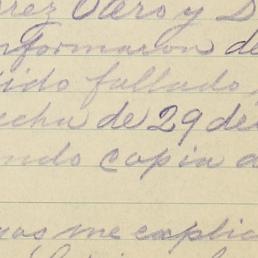 rrez Otero y D
nformaron de
ido fallado,
echa de 29 de
ando copia d
me explic